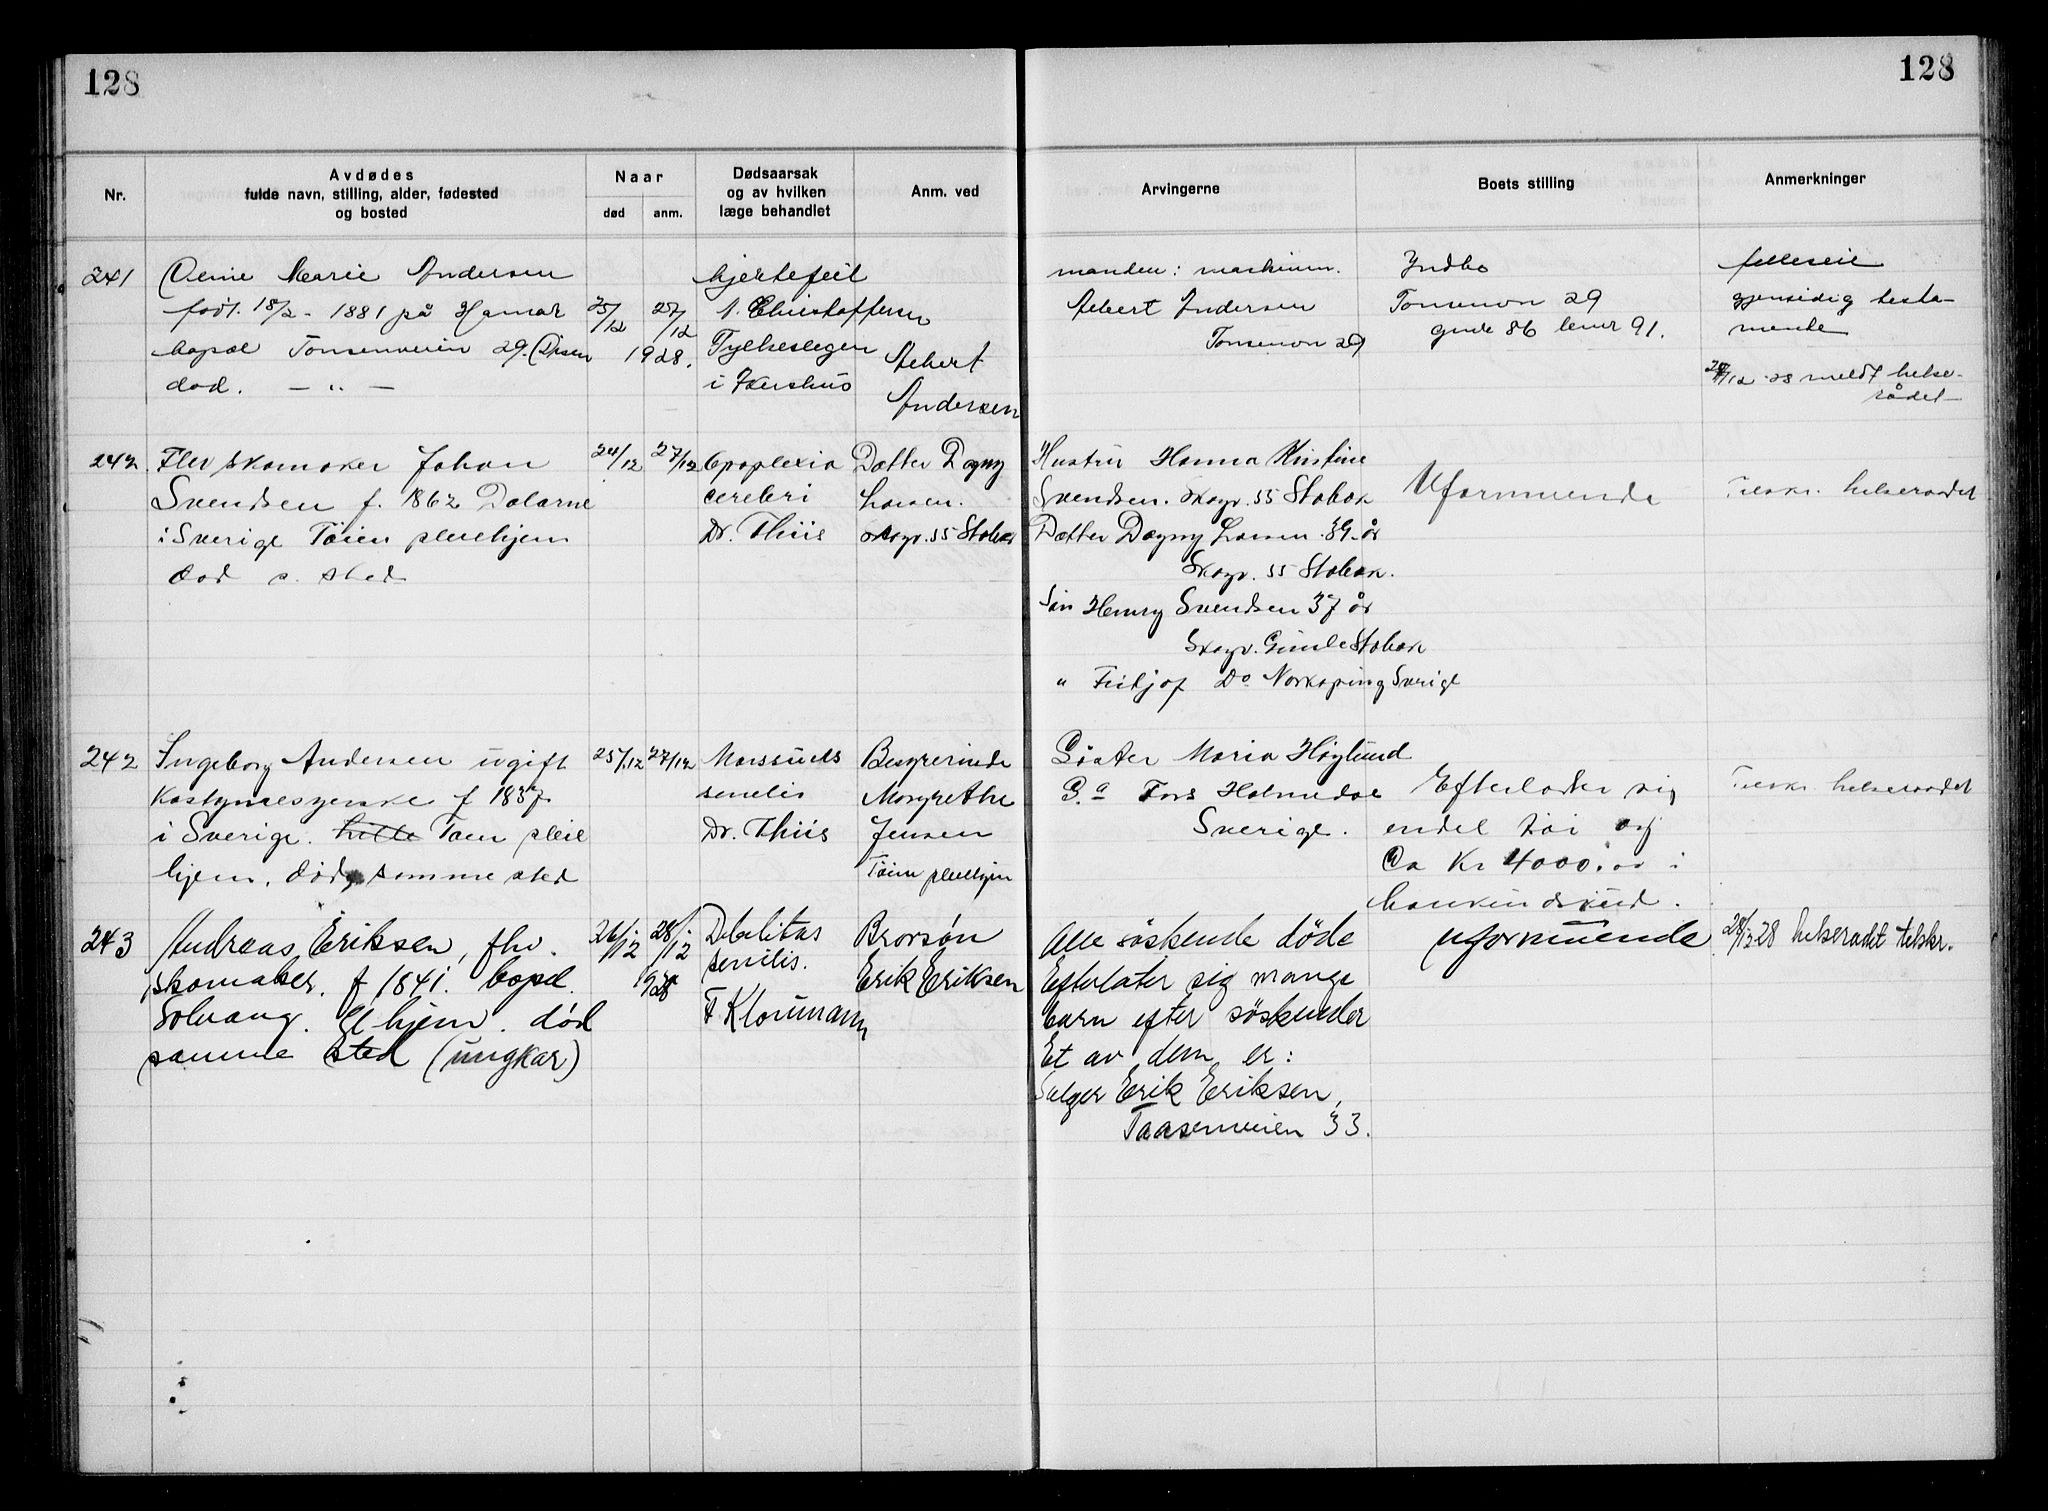 128
128
Nr.
Avdødes
fulde navn, stilling, alder, fødested
og bosted
Naar
død
anm.
Dødsaarsak
og av hvilken
læge behandlet
Anm. ved
Arvingerne
Boets stilling
Anmerkninger
241
Marie Andersen
født. 18/2 - 1881 på Hamar
bopæl Tonsenveien 29.
død. — „ —
25/12
28/12
1928.
hjertefeil
A. Christoffersen
Fylkeslegen
i Akershus
Albert
Andersen
manden: maskinm.
Albert Andersen
Tonsenvn 29
Indbo
Tonsenvn 29
gnr 86 bnr 91.
felleseie
gjensidig testa-
mente
28/12 - 28 meldt helse-
rådet
242
Fhv skomaker Johan
Svendsen f. 1862 Dalarne
i Sverige Töien pleiehjem
død s. sted
24/12
27/12
Apoplexia
cerebri
Dr. Thiis
Datter Dagny
Larsen.
Skogv. 55 Stabæk
Hustru Hanna Kristine
Svendsen. Skogv. 55 Stabæk
Datter Dagny Larsen 39 år
Skogv. 55 Stabæk.
Søn Henry Svendsen 37 år
Skogv. Gimle Stabæk
„ Fritjof Do Norkøping Sverige
Uformuende
Tilskr. helseraadet
242
Ingeborg Andersen ugift
f 1837
i Sverige. hille Tøien pleie
hjem, død samme sted
25/12
27/12
Marasmus
senilis
Dr. Thiis
Bestyrerinde
Margrethe
Jensen
Töien pleiehjem
Søster Maria Höglund
Fors Holmedal
Sverige.
Efterlader sig
endel tøi og
Ca Kr 4000.00 i
bankindskud.
Tilskr. helseraadet
243
Andreas Eriksen, fhv.
skomaker. f 1841. bopæl
Solvang. Gl hjem. død
samme sted (ungkar)
26/12
28/12
1928
Debilitas
senilis.
F. Klouman
Brorsøn
Erik Eriksen
Alle søskende døde
Efterlater sig mange
barn efter søskender
Et av dem er:
Selger Erik Eriksen,
Taasenveien 33.
uformuende
28/12 28 helseradet tilskr.